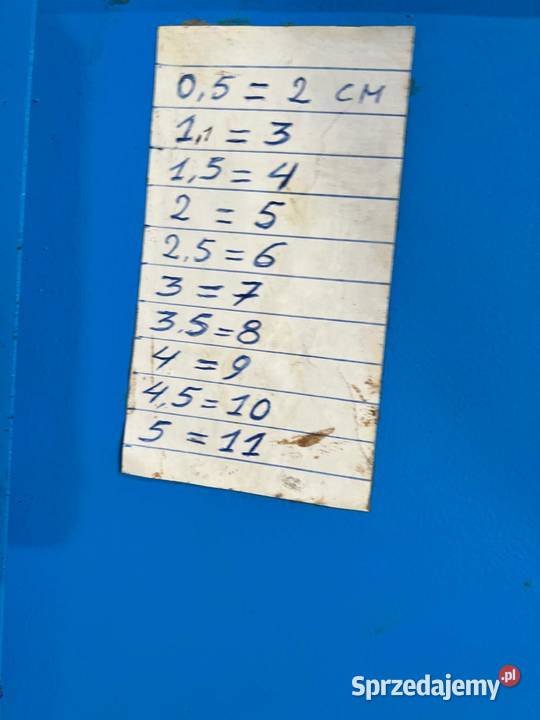 0,5 = 2 см
1,1 = 3
1,5 = 4
2 = 5
2,5 = 6
3 = 7
3.5 = 8
4 = 9
4,5 = 10
5 = 11
Sprzedajemy.pl